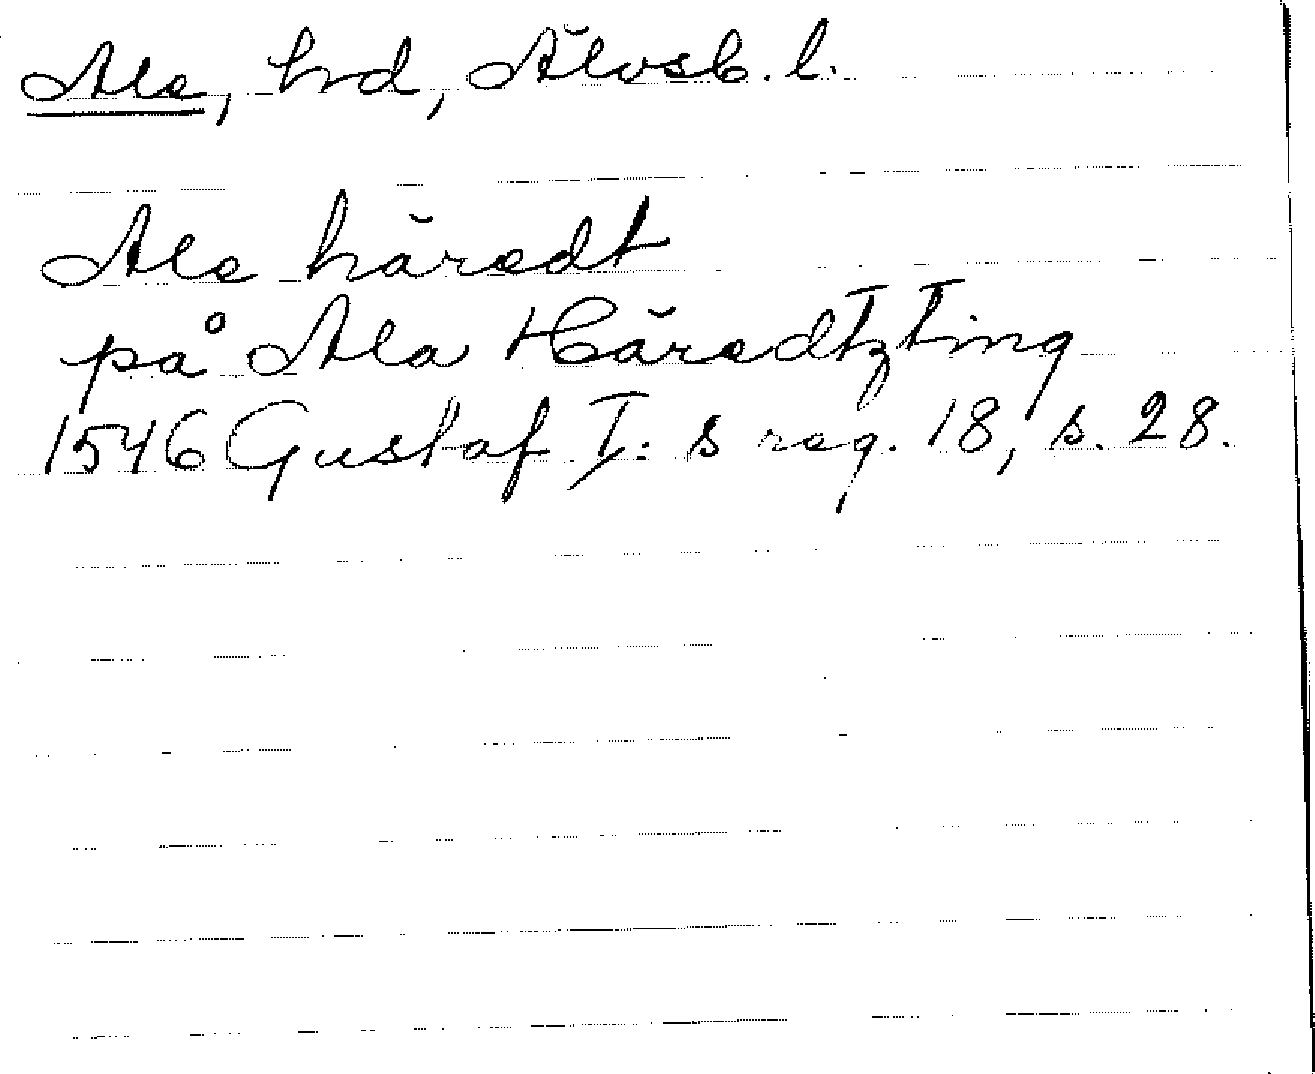 Ale, hrd, Älvsb. l.
Ale häredt
på Ala HäredtzTing
1546 Gustaf I: s reg. 18, s. 28.